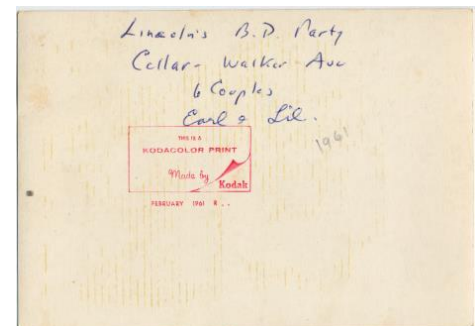 Lincoln's B.D. Party
Cellar - Walker Ave
6 Couples
Earl & Lil.
1961
THIS IS A
KODACOLOR PRINT
Made by
Kodak
FEBRUARY 1961 R